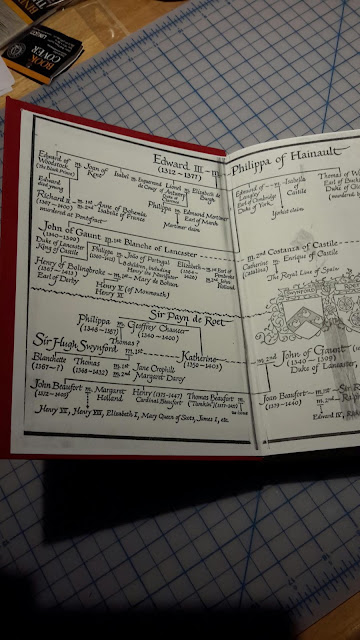 BOOK
COVER
Edward III - m - Philippa of Hainault
(1312 - 1377)
Edward of Woodstock (the Black Prince)
m. Joan of Kent
Isabel m. Enguerrand de Coucy
Lionel of Antwerp m. Elizabeth de Burgh
Edmund of Langley
Earl of Cambridge
Duke of York
m. Isabella Castile
Thomas of W
Earl of Buck
Duke of
Edward died young
Philippa m. Edmund Mortimer
Earl of March
Mortimer claim
Yorkist claim
Richard II
m. 1st Anne of Bohemia
m. 2nd Isabelle of France
murdered at Pontefract
John of Gaunt m. 1st Blanche of Lancaster
m. 2nd Costanza of Castile
(1340 - 1399)
Duke of Lancaster
King of Castile
Philippa m. João of Portugal
5 children, including
Henry the Navigator
Elizabeth
John Holland
Catherine (Catalina) m. Enrique of Castile
The Royal Line of Spain
Henry of Bolingbroke m. 1st Mary de Bohun
(1367 - 1413)
Earl of Derby
Henry V (of Monmouth)
Henry VI
Sir Payn de Roet
Philippa m. Geoffrey Chaucer
(1340 - 1400)
Thomas ?
Sir Hugh Swynford m. 1st Katherine
m. 2nd John of Gaunt
(1340 - 1399)
Duke of Lancaster,
Blanchette
(1367 - ?)
Thomas
(1368 - 1432)
m. 1st Jane Crophill
m. 2nd Margaret Darcy
John Beaufort m. Margaret Holland
Henry (1375-1447)
Cardinal Beaufort
Thomas Beaufort
Joan Beaufort
(1379 - 1440)
m. 1st
m. 2nd
Henry VI, Henry VIII, Elizabeth I, Mary Queen of Scots, James I, etc.
Edward IV,